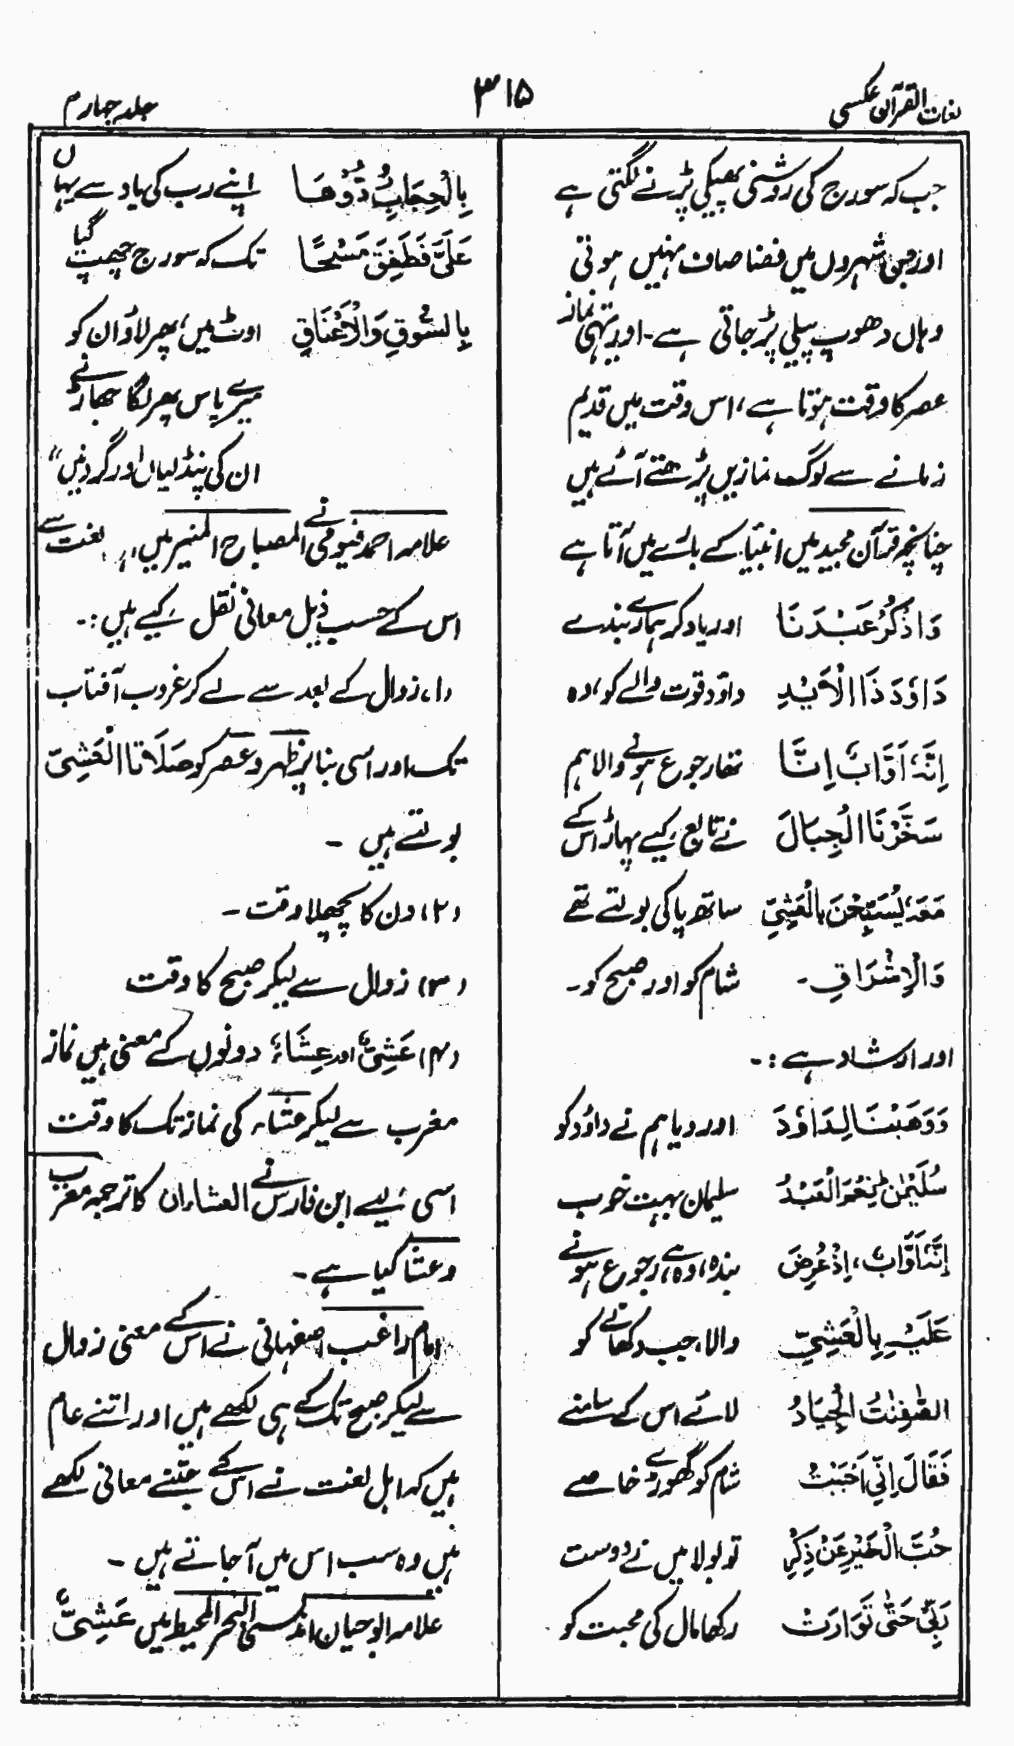 لغات القرآن عکسی
۳۱۵
جلد چہارم
جب کہ سورج کی روشنی پھیکی پڑنے لگتی ہے
اور جن شہروں میں فضا صاف نہیں ہوتی
وہاں دھوپ پیلی پڑ جاتی ہے۔ اور یہی نماز
عصر کا وقت ہوتا ہے، اس وقت میں قدیم
زمانے سے لوگ نمازیں پڑھتے آئے ہیں
چنانچہ قرآن مجید میں انبیاء کے بارے میں آتا ہے
وَاذْكُرْ عَبْدَنَا اور یاد کر ہمارے بندے
دَاوٗدَ ذَا الْاَيْدِ داؤد قوت والے کو، وہ
اِنَّهٗ اَوَّابٌ اِنَّا تھا رجوع ہونے والا ہم
سَخَّرْنَا الْجِبَالَ نے تابع کیے پہاڑ اس کے
مَعَهٗ يُسَبِّحْنَ بِالْعَشِيِّ ساتھ پاکی بولتے تھے
وَالْاِشْرَاقِ۔ شام کو اور صبح کو۔
اور ارشاد ہے :۔
وَوَهَبْنَا لِدَاوٗدَ اور دیا ہم نے داؤد کو
سُلَيْمٰنَ نِعْمَ الْعَبْدُ سلیمان بہت خوب
اِنَّهٗ اَوَّابٌ، اِذْ عُرِضَ بندہ، وہ ہے رجوع ہونے
عَلَيْهِ بِالْعَشِيِّ والا، جب دکھانے کو
الصّٰفِنٰتُ الْجِيَادُ لائے اس کے سامنے
فَقَالَ اِنِّيْ اَحْبَبْتُ شام کو گھوڑے خاصے
حُبَّ الْخَيْرِ عَنْ ذِكْرِ تو بولا میں نے دوست
رَبِّيْ حَتّٰى تَوَارَتْ رکھا مال کی محبت کو
بِالْحِجَابِ رُدُّوْهَا اپنے رب کی یاد سے یہاں
عَلَيَّ فَطَفِقَ مَسْحًا تک کہ سورج چھپ گیا
بِالسُّوْقِ وَالْاَعْنَاقِ اوٹ میں، پھر لاؤ ان کو
میرے پاس پھر لگا جھاڑنے
ان کی پنڈلیاں اور گردنیں"
علامہ احمد فیومی نے المصباح المنیر میں، لغت سے
اس کے حسب ذیل معانی نقل کیے ہیں :۔
(۱) زوال کے بعد سے لے کر غروب آفتاب
تک اور اسی بنا پر ظہر و عصر کو صَلَاتَا الْعَشِيِّ
بولتے ہیں ۔
(۲) دن کا پچھلا وقت ۔
(۳) زوال سے لیکر صبح کا وقت
(۴) عَشِيٌّ اور عِشَاءٌ دونوں کے معنی ہیں نماز
مغرب سے لیکر عشاء کی نماز تک کا وقت
اسی لیے ابن فارس نے العشاءان کا ترجمہ مغرب
و عشا کیا ہے۔
امام راغب اصفہانی نے اس کے معنی زوال
سے لیکر صبح تک کے ہی لکھے ہیں اور اتنے عام
ہیں کہ اہل لغت نے اس کے جتنے معانی لکھے
ہیں وہ سب اس میں آ جاتے ہیں ۔
علامہ ابو حیان اندلسی البحر المحیط میں عَشِيٌّ